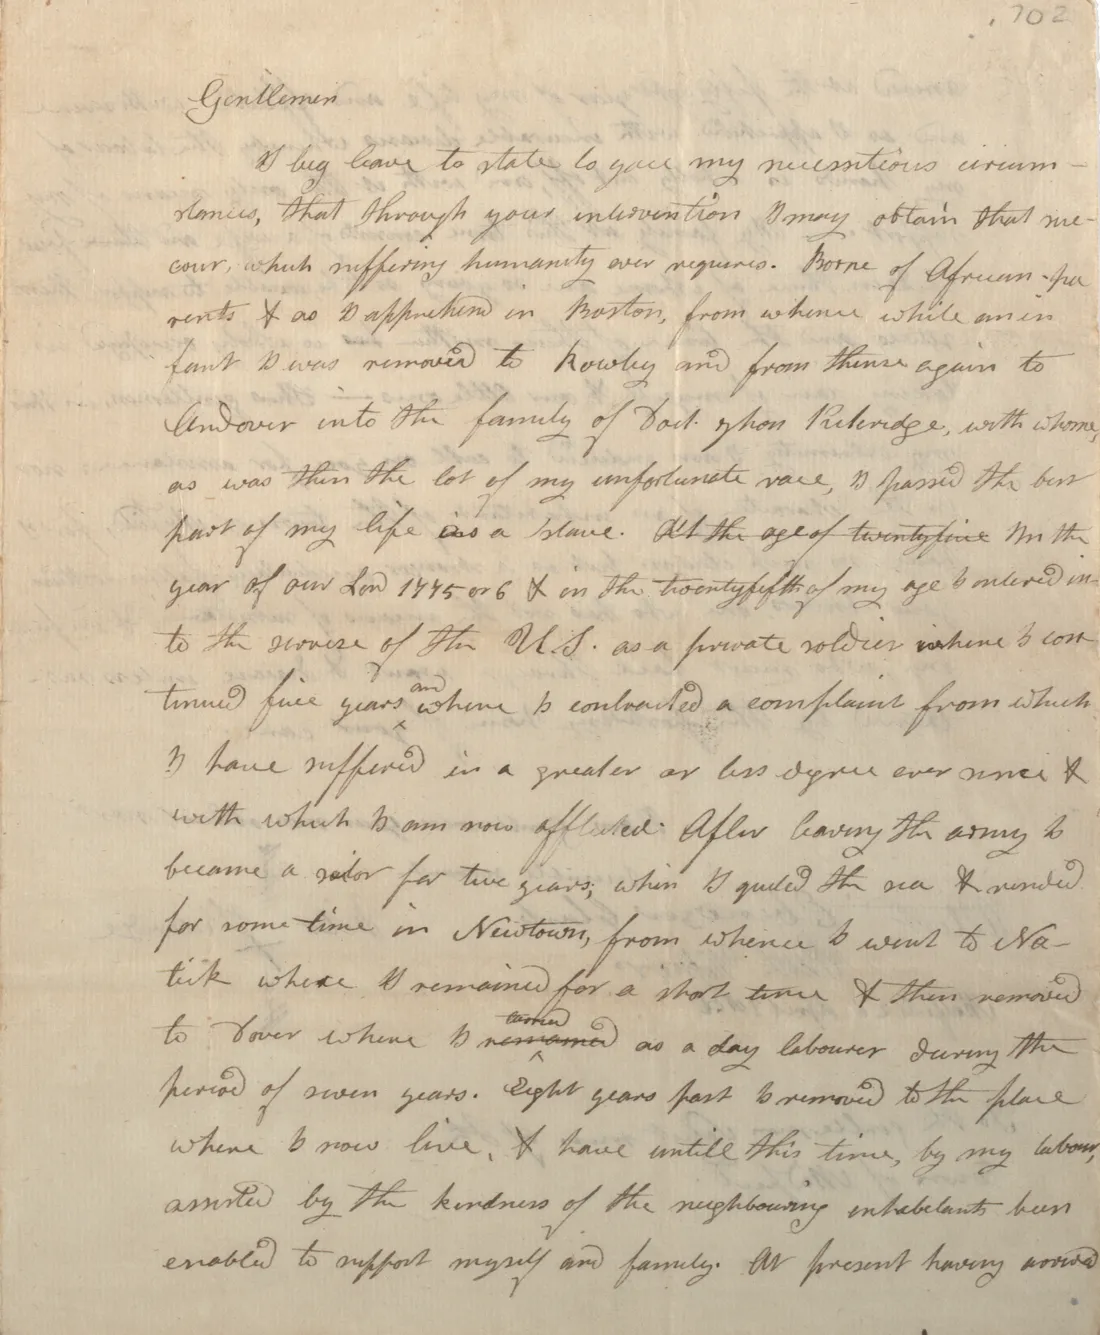 702
Gentlemen
I beg leave to state to you my necessitious circum-
stances, that through your intervention I may obtain that suc-
cour, which suffering humanity ever requires. Borne of African-pa
rents & as I apprehend in Boston, from whence while an in
fant I was removed to Rowley and from thense again to
Andover into the family of Doct. Jhon Kiteridge, with whome,
as was then the lot of my unfortunate race, I passed the best
part of my life as a slave. At the age of twentyfive In the
year of our Lord 1775 or 6 & in the twentyfifth of my age I entered in-
to the servise of the U.S. as a private soldier where I con-
tinued five years and where I contracted a complaint from which
I have suffered in a greater or less degree ever since &
with which I am now afflicted. After leaving the army I
became a sailor for two years; when I quited the sea & resided
for some time in Newtown, from whence I went to Na-
tick where I remained for a short time & then removed
to Dover where I remained tarried as a day labourer during the
period of seven years. Eight years past I removed to the place
where I now live, & have untill this time, by my labour,
assisted by the kindness of the neighbouring inhabetants been
enabled to support myself and family. At present having arived